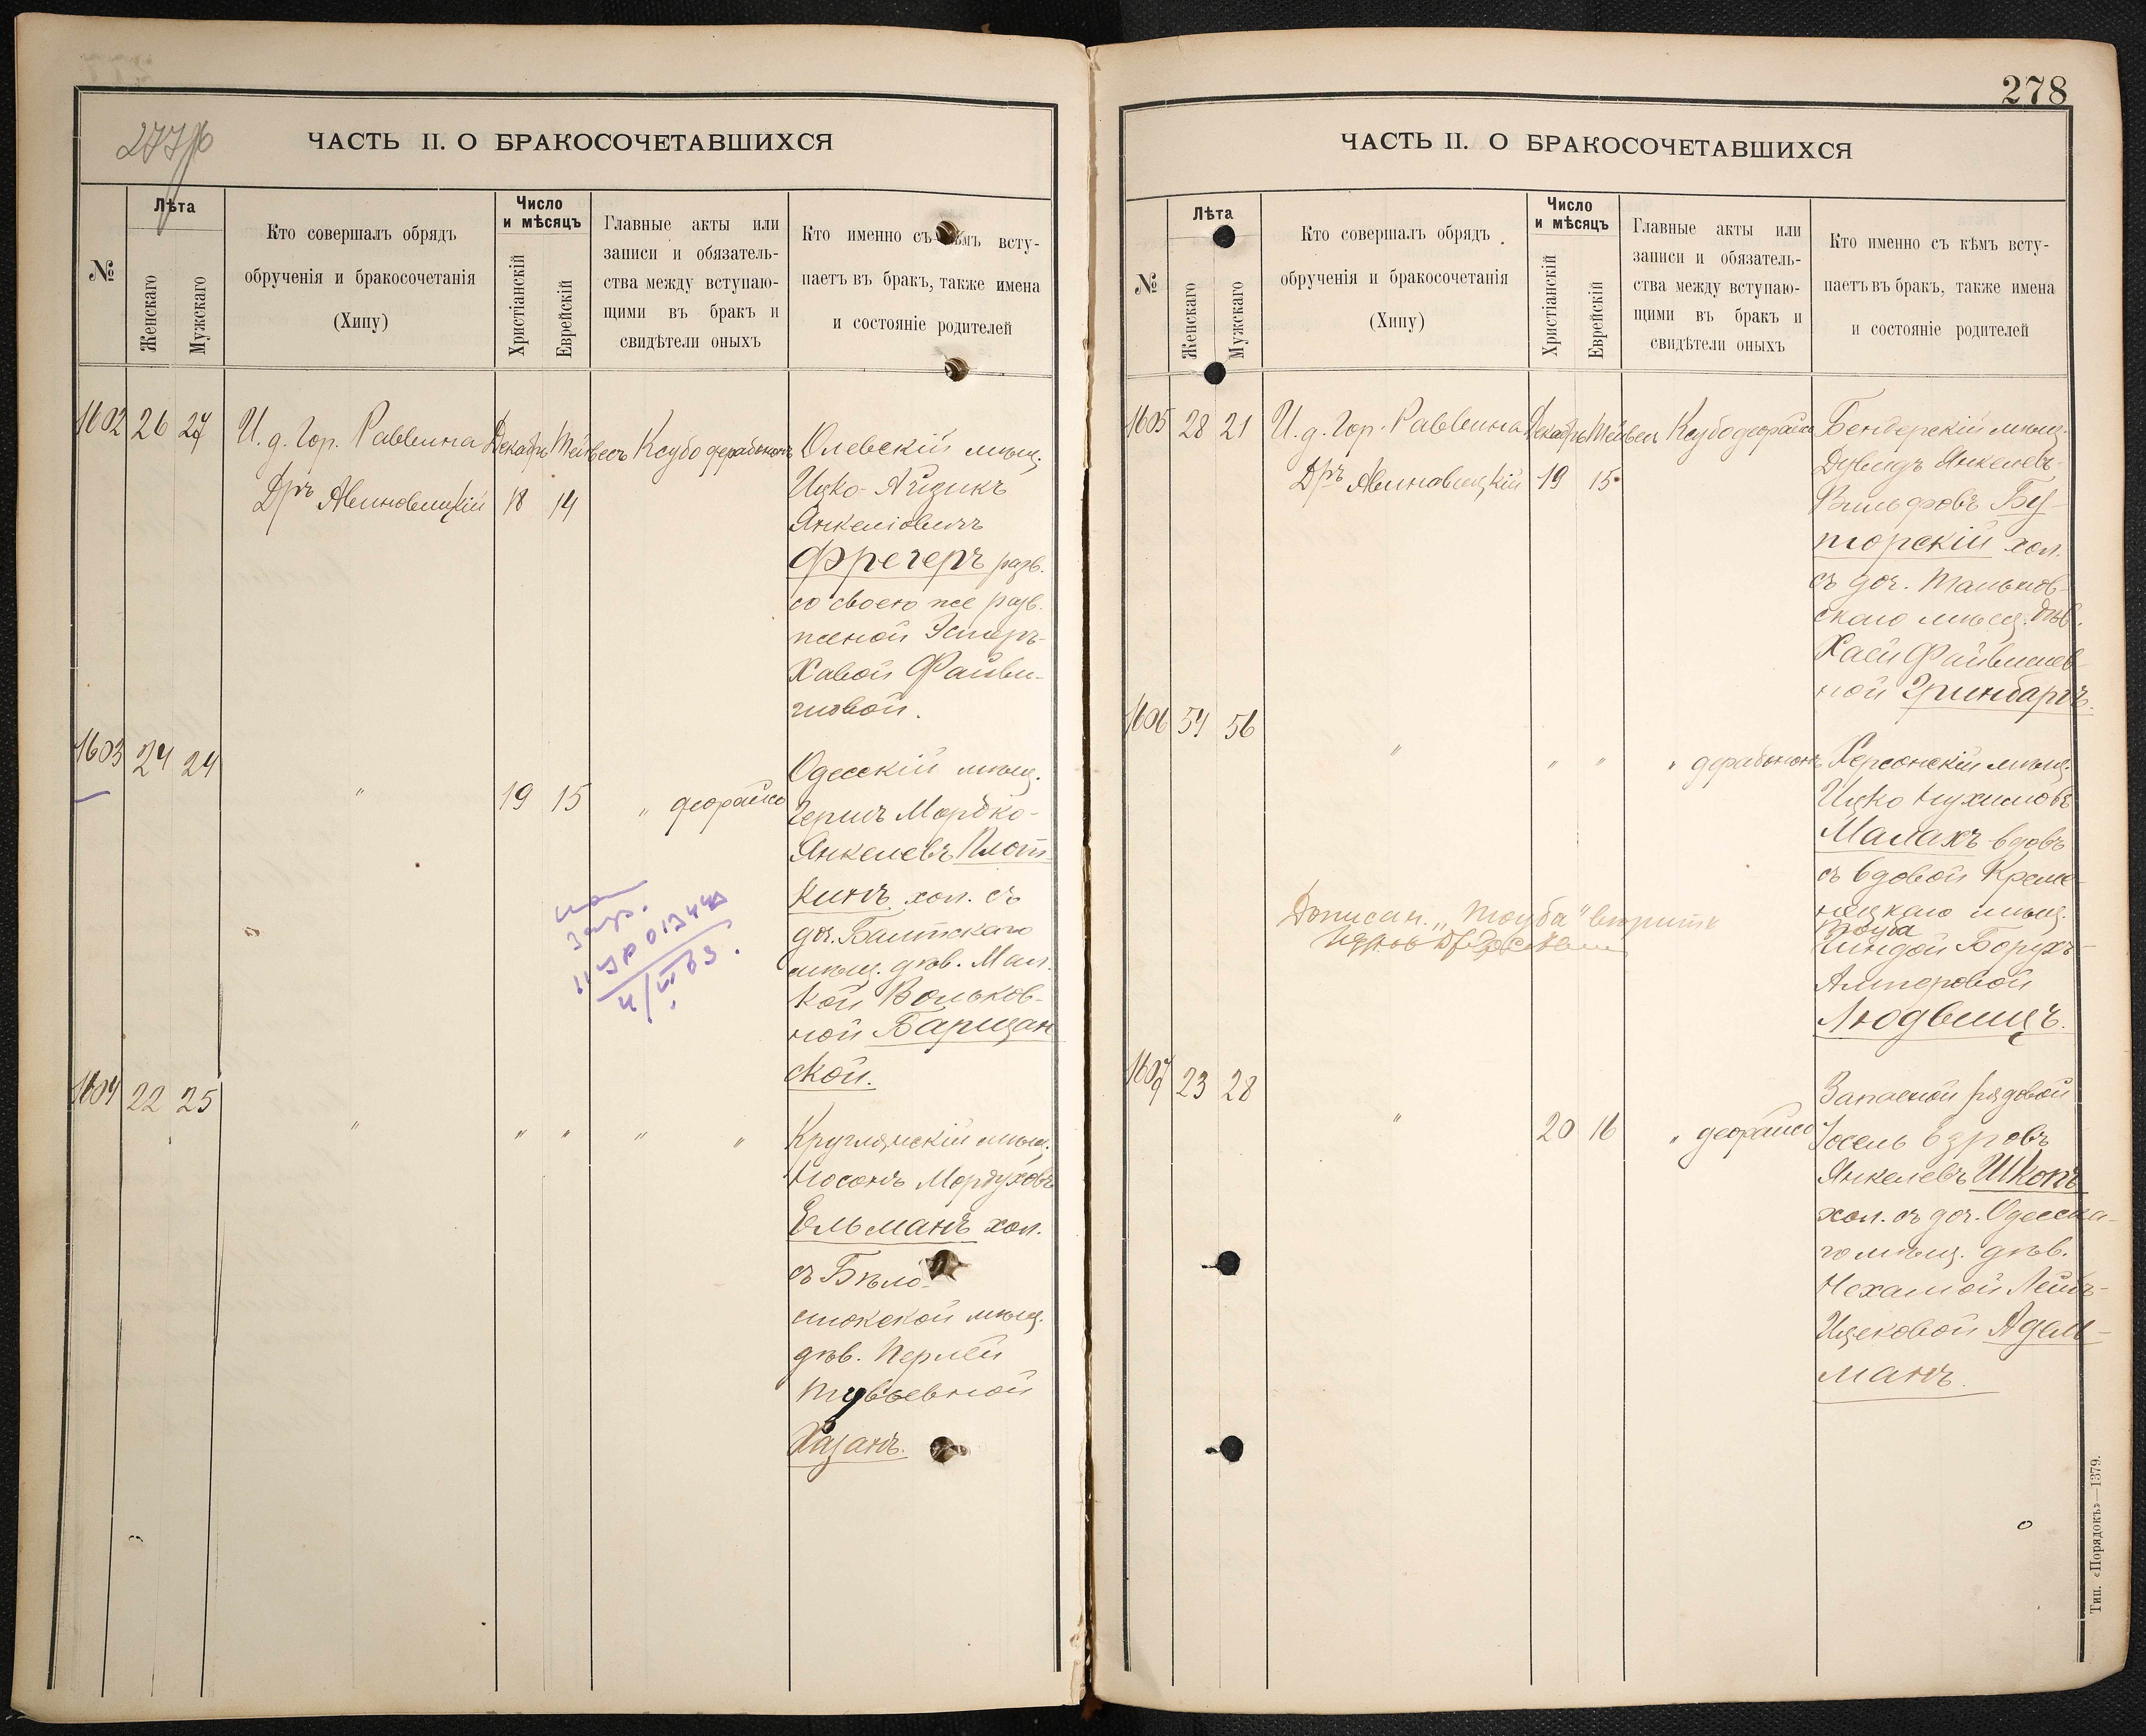 277об
ЧАСТЬ II. О БРАКОСОЧЕТАВШИХСЯ
№
Лѣта
Женскаго
Мужскаго
Кто совершалъ обрядъ
обрученія и бракосочетанія
(Хипу)
Число
и мѣсяцъ
Христіанскій
Еврейскій
Главные акты или
записи и обязатель-
ства между вступаю-
щими въ бракъ и
свидѣтели оныхъ
Кто именно съ кѣмъ всту-
паетъ въ бракъ, также имена
и состояніе родителей
1602 26 27 И. д. Гор. Раввина Декабрь Тейвесъ Ксубо дерабононъ
Дръ Авиновицкій 18 14
Олевскій мѣщ.
Ицко-Айзикъ
Янкеліовичъ
Фречеръ разв.
со своею же разв.
женой Эстеръ-
Хавой Файви-
шовой.
1603 24 24 " 19 15 " деорайсо
Одесскій мѣщ.
Гершъ Мордко-
Янкелевъ Плот-
кинъ хол. съ
доч. Балтскаго
мѣщ. дѣв. Мал-
кой Вольков-
ной Барщан
ской.
1604 22 25 " " " " "
Круглянскій мѣщ.
Носонъ Мордуховъ
Ельманъ хол.
съ Бѣло-
стокской мѣщ.
дѣв. Перлей
Тувьевной
Хазанъ.
278
ЧАСТЬ II. О БРАКОСОЧЕТАВШИХСЯ
№
Лѣта
Женскаго
Мужскаго
Кто совершалъ обрядъ
обрученія и бракосочетанія
(Хипу)
Число
и мѣсяцъ
Христіанскій
Еврейскій
Главные акты или
записи и обязатель-
ства между вступаю-
щими въ бракъ и
свидѣтели оныхъ
Кто именно съ кѣмъ всту-
паетъ въ бракъ, также имена
и состояніе родителей
1605 28 21 И. д. Гор. Раввина Декабрь Тейвес Ксубо деорайсо
Дръ Авиновицкій 19 15
Бендерскій мѣщ.
Дувидъ Янкелевъ-
Вильфовъ Бу-
торскій хол.
съ доч. Тальнов-
скаго мѣщ. дѣв.
Хаей Файвишев-
ной Гринбаргъ.
1606 54 56 " " " " дерабононъ
Херсонскій мѣщ.
Ицко Нухимовъ
Малахъ вдовъ
съ вдовой Креме-
нецкаго мѣщ.
Тоуба
Гиндой Борухъ-
Алтеровой
Людвицъ.
Дописан. "Тоуба" вѣрить
1607 23 28 " 20 16 " деорайсо
Запасной рядовой
Іосель Езровъ
Янкелевъ Шкопъ
хол. съ доч. Одесска-
го мѣщ. дѣв.
Нехамой Лейбъ-
Ицековой Адель-
манъ.
Тип. «Порядокъ»—1379.